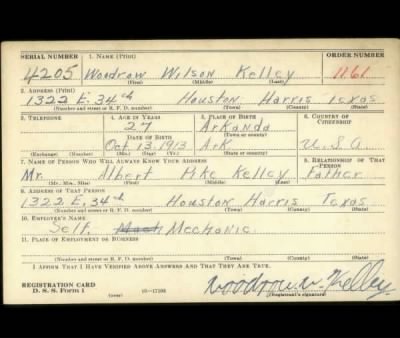 SERIAL NUMBER 1. NAME (Print) ORDER NUMBER
4205 Woodrow Wilson Kelley 1161
(First) (Middle) (Last)
2. ADDRESS (Print)
1322 E. 34th Houston Harris Texas
(Number and street or R. F. D. number) (Town) (County) (State)
3. TELEPHONE 4. AGE IN YEARS 5. PLACE OF BIRTH 6. COUNTRY OF CITIZENSHIP
27 Arkanda
DATE OF BIRTH (Town or county)
Oct 13 1913 Ark U.S.A.
(Exchange) (Number) (Mo.) (Day) (Yr.) (State or country)
7. NAME OF PERSON WHO WILL ALWAYS KNOW YOUR ADDRESS 8. RELATIONSHIP OF THAT PERSON
Mr. Albert Pike Kelley Father
(Mr., Mrs., Miss) (First) (Middle) (Last)
9. ADDRESS OF THAT PERSON
1322 E. 34th Houston Harris Texas
(Number and street or R. F. D. number) (Town) (County) (State)
10. EMPLOYER'S NAME
Self. Mech Mechanic
11. PLACE OF EMPLOYMENT OR BUSINESS
(Number and street or R. F. D. number) (Town) (County) (State)
I AFFIRM THAT I HAVE VERIFIED ABOVE ANSWERS AND THAT THEY ARE TRUE.
REGISTRATION CARD
D. S. S. Form 1 (over) 16—17105
Woodrow W. Kelley
(Registrant's signature)